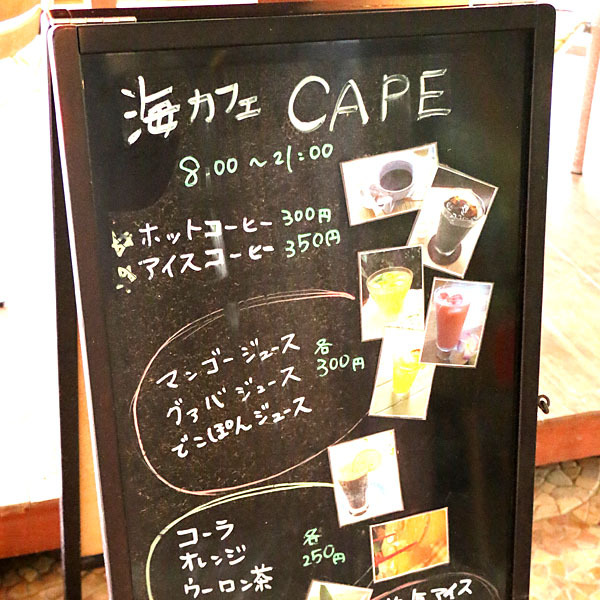 海カフェ CAPE
8:00～21:00
ホットコーヒー 300円
アイスコーヒー 350円
マンゴージュース 各
グァバジュース 300円
でこぽんジュース
コーラ 各
オレンジ 250円
ウーロン茶
アイス